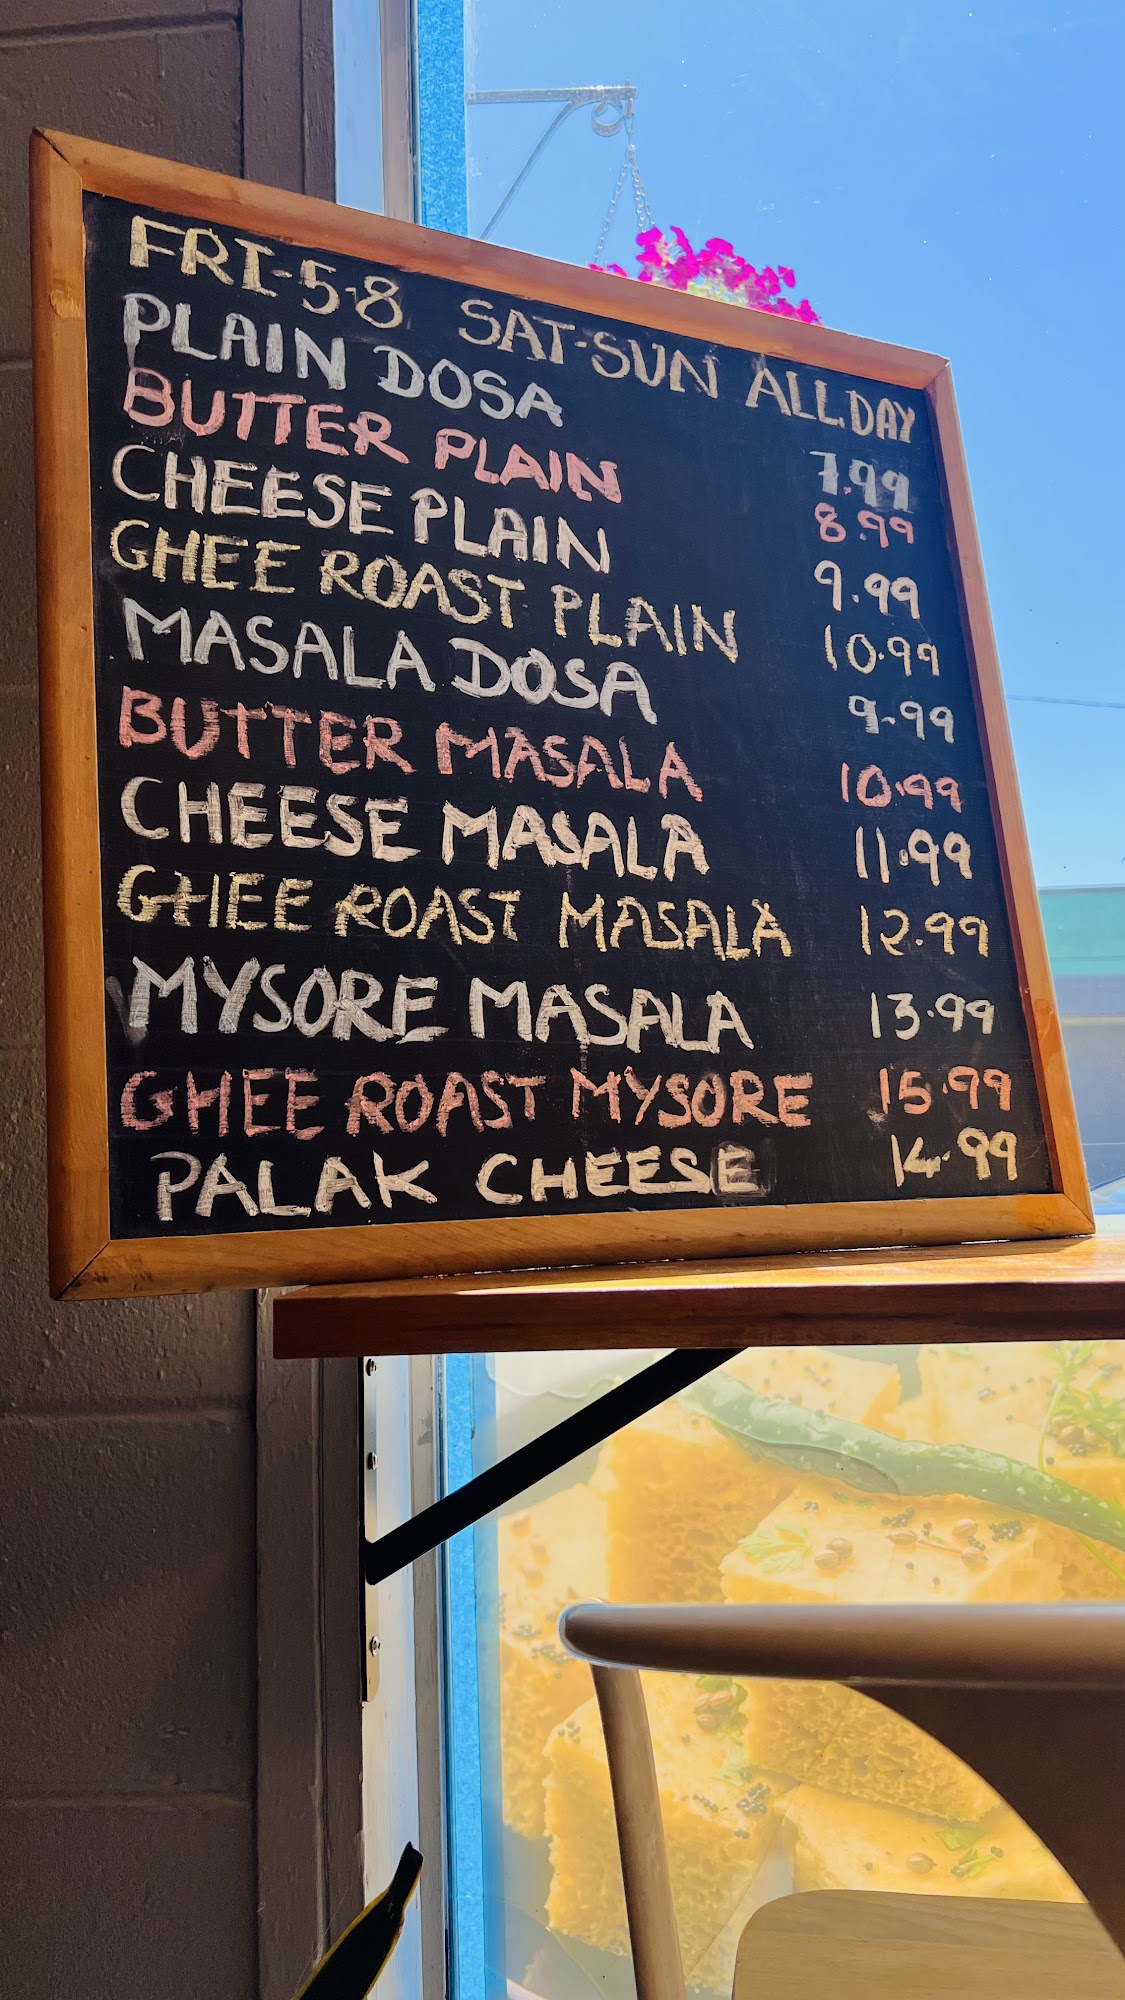 FRI-5-8 SAT-SUN ALL DAY
PLAIN DOSA 7.99
BUTTER PLAIN 8.99
CHEESE PLAIN 9.99
GHEE ROAST PLAIN 10.99
MASALA DOSA 9.99
BUTTER MASALA 10.99
CHEESE MASALA 11.99
GHEE ROAST MASALA 12.99
MYSORE MASALA 13.99
GHEE ROAST MYSORE 15.99
PALAK CHEESE 14.99